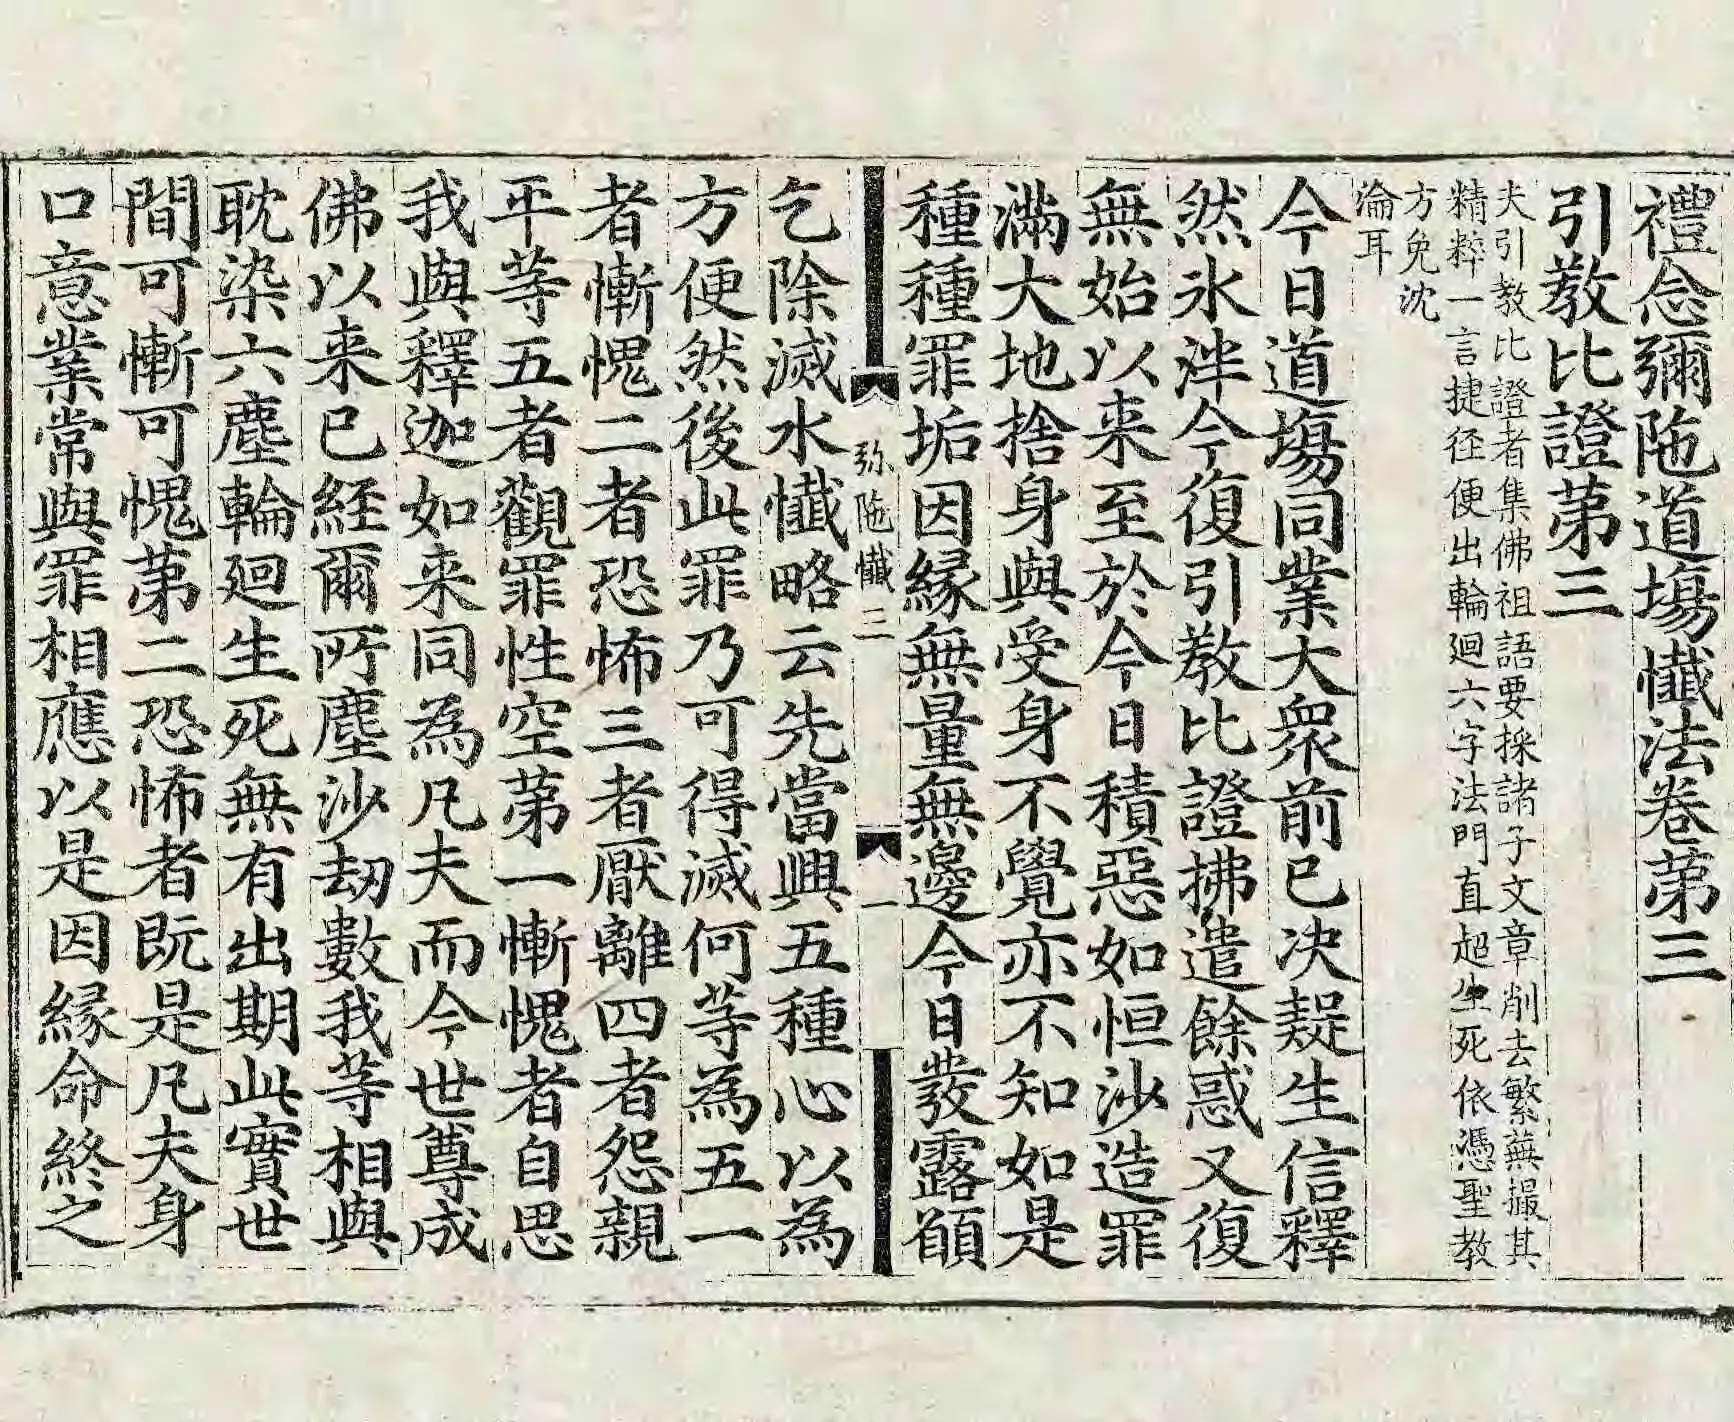 禮念彌陁道塲懺法卷苐三
引教比證苐三
夫引教比證者集佛祖語要採諸子文章削去繁蕪撮其
精粹一言捷径便出輪廻六字法門直超生死依憑聖教
方免沈
淪耳
今日道塲同業大衆前已决疑生信釋
然氷泮今復引教比證拂遣餘惑又復
無始以来至於今日積惡如恒沙造罪
滿大地捨身與受身不覺亦不知如是
種種罪垢因縁無量無邊今日發露願
弥陁懺三　一
乞除滅水懺略云先當興五種心以為
方便然後此罪乃可得滅何等為五一
者慚愧二者恐怖三者厭離四者怨親
平等五者觀罪性空苐一慚愧者自思
我與釋迦如来同為凡夫而今世尊成
佛以来已経爾所塵沙劫數我等相與
耽染六塵輪廻生死無有出期此實世
間可慚可愧苐二恐怖者既是凡夫身
口意業常與罪相應以是因縁命終之